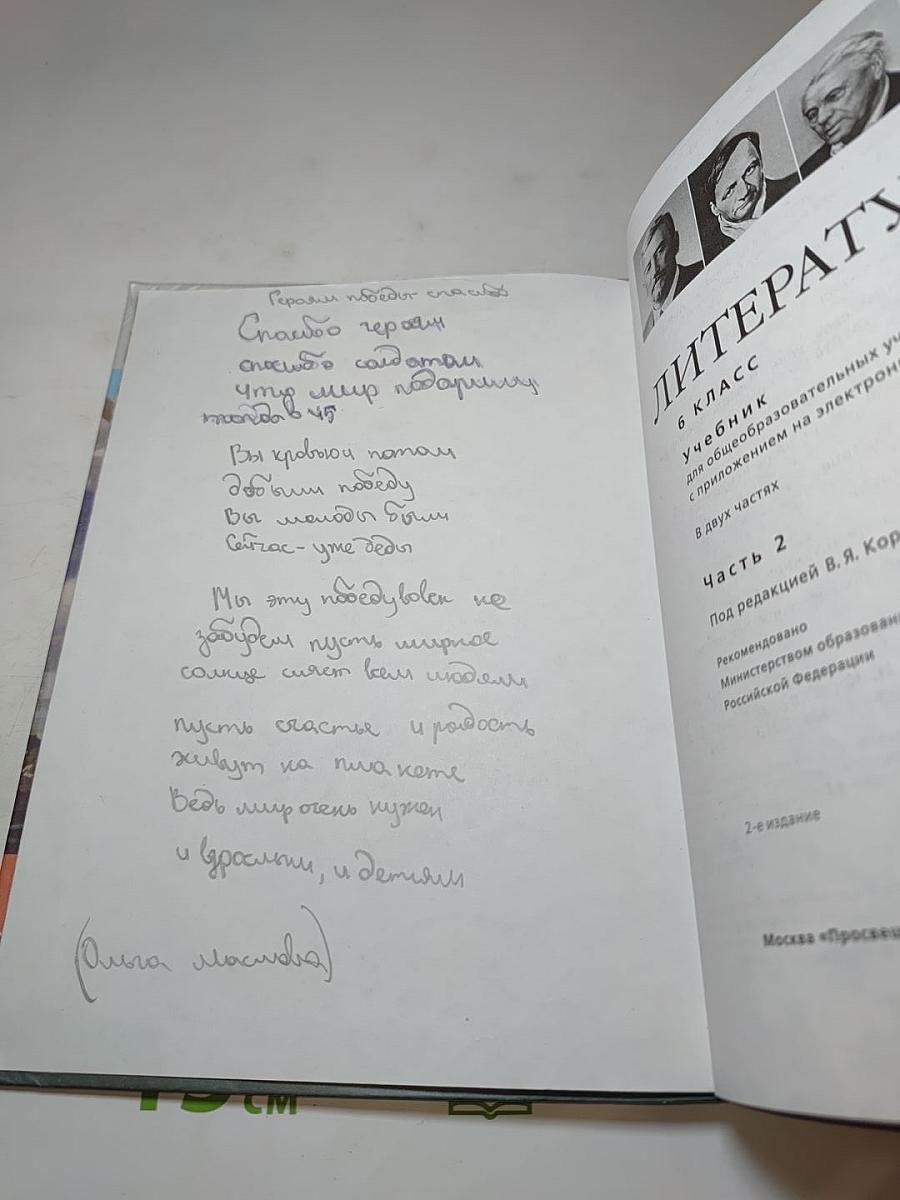 Героям победы спасибо
Спасибо героям
спасибо солдатам
что мир подарили
тогда в 45
Вы кровью и потом
добыли победу
Вы молоды были
Сейчас - уже деды
Мы эту победу вовек не
забудем пусть мирное
солнце сияет всем людям
пусть счастье и радость
живут на планете
Ведь мир очень нужен
и взрослым, и детям
(Ольга Маслова)
ЛИТЕРАТУ
6 КЛАСС
Учебник
для общеобразовательных уч
с приложением на электрон
В двух частях
Часть 2
Под редакцией В. Я. Кор
Рекомендовано
Министерством образован
Российской Федерации
2-е издание
Москва «Просвещ
см